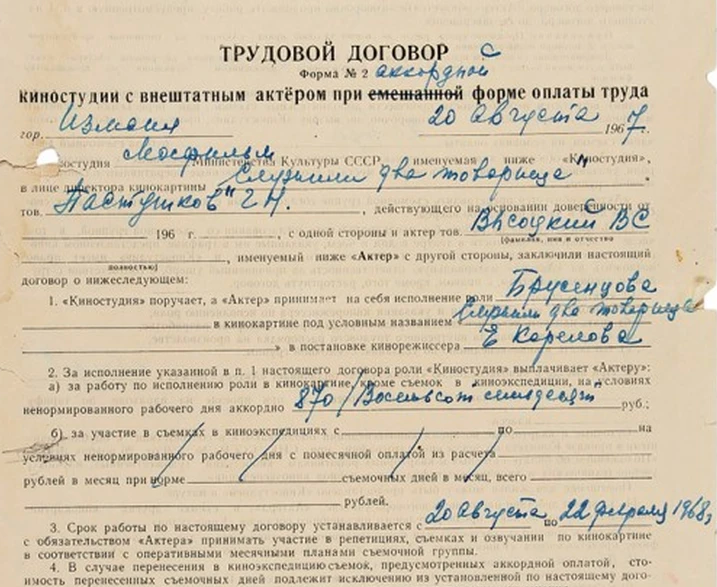 ТРУДОВОЙ ДОГОВОР с
Форма № 2 аккордной
киностудии с внештатным актёром при смешанной форме оплаты труда
гор. Измаил 20 августа 1967 г.
Киностудия Мосфильм Министерства Культуры СССР, именуемая ниже «Киностудия»,
в лице директора кинокартины „Служили два товарища"
тов. Пастушков Г Н. , действующего на основании доверенности от
196 г. , с одной стороны и актер тов. Высоцкий ВС
(фамилия, имя и отчество
полностью)
, именуемый ниже «Актер» с другой стороны, заключили настоящий
договор о нижеследующем:
1. «Киностудия» поручает, а «Актер» принимает на себя исполнение роли Брусенцова
в кинокартине под условным названием «Служили два товарища
» в постановке кинорежиссера Е Карелова
2. За исполнение указанной в п. 1 настоящего договора роли «Киностудия» выплачивает «Актеру»:
а) за работу по исполнению роли в кинокартине, кроме съемок в киноэкспедиции, на условиях
ненормированного рабочего дня аккордно 870 /Восемьсот семьдесят руб.;
б) за участие в съемках в киноэкспедициях с по на
условиях ненормированного рабочего дня с помесячной оплатой из расчета
рублей в месяц при норме съемочных дней в месяц, всего
рублей.
3. Срок работы по настоящему договору устанавливается с 20 августа по 22 февраля 1968 г
с обязательством «Актера» принимать участие в репетициях, съемках и озвучании по кинокартине
в соответствии с оперативными месячными планами съемочной группы.
4. В случае перенесения в киноэкспедицию съемок, предусмотренных аккордной оплатой, сто-
имость перенесенных съемочных дней подлежит исключению из установленной по настоящему дого-